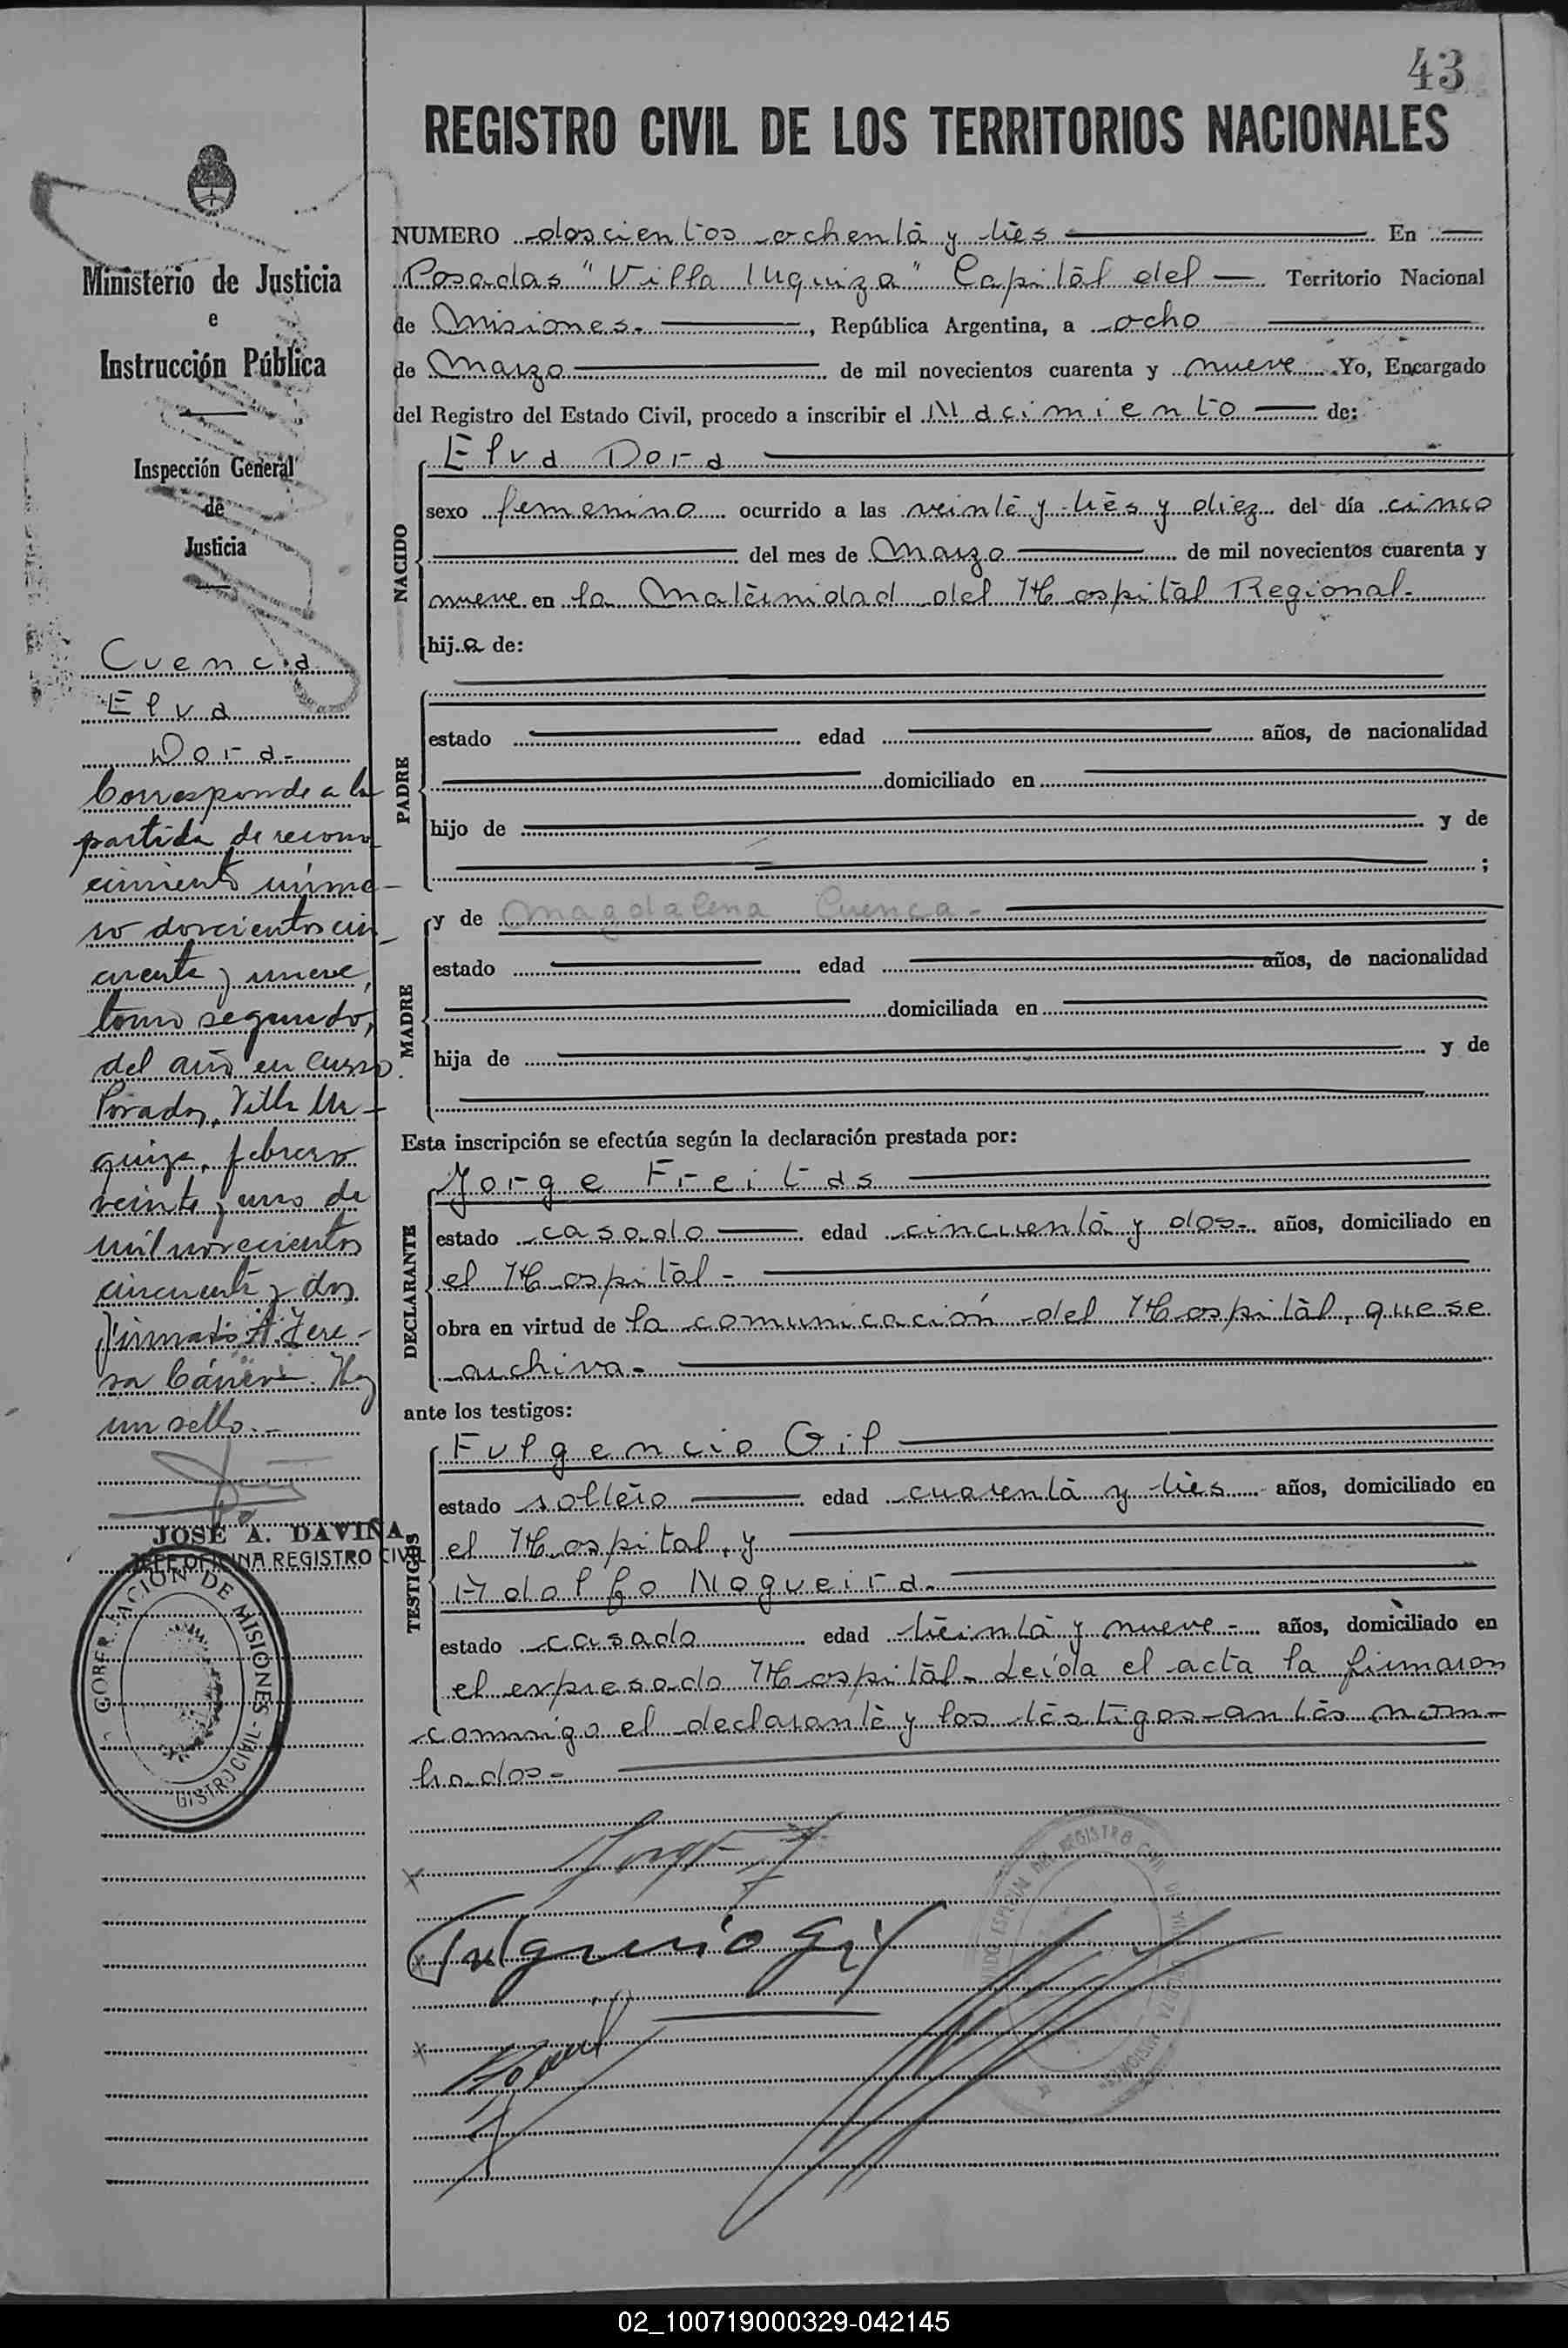 43
REGISTRO CIVIL DE LOS TERRITORIOS NACIONALES
Ministerio de Justicia
e
Instrucción Pública
Inspección General
de
Justicia
Cuenca
Elva
Dora-
Corresponde a la
partida de recono
cimiento núme-
ro doscientos cin-
cuenta y nueve,
tomo segundo,
del año en curso.
Posadas, Villa Ur-
quiza, febrero
veinte y uno de
mil novecientos
cincuenta y dos
firmado A. Tere-
sa . Hay
un sello.-
JOSÉ A. DAVIÑA
JEFE OFICINA REGISTRO CIVIL
GOBERNACION DE MISIONES - REGISTRO CIVIL -
NUMERO doscientos ochenta y tres En
Posadas "Villa Urquiza" Capital del Territorio Nacional
de Misiones. , República Argentina, a ocho
de Marzo de mil novecientos cuarenta y nueve Yo, Encargado
del Registro del Estado Civil, procedo a inscribir el Nacimiento de:
NACIDO
Elva Dora
sexo femenino ocurrido a las veinte y tres y diez del día cinco
del mes de Marzo de mil novecientos cuarenta y
nueve en la Maternidad del Hospital Regional.
hija de:
PADRE
estado edad años, de nacionalidad
domiciliado en
hijo de y de
;
MADRE
y de Magdalena Cuenca-
estado edad años, de nacionalidad
domiciliada en
hija de y de
Esta inscripción se efectúa según la declaración prestada por:
DECLARANTE
Jorge Freitas
estado casado edad cincuenta y dos- años, domiciliado en
el Hospital-
obra en virtud de la comunicación del Hospital, que se
archiva-
ante los testigos:
TESTIGOS
Fulgencio Gil
estado soltero edad cuarenta y tres años, domiciliado en
el Hospital, y
Adolfo Nogueira.
estado casado edad treinta y nueve- años, domiciliado en
el expresado Hospital- Leída el acta la firmaron
conmigo el declarante y los testigos antes nom-
brados-
Fulgencio Gil
02_100719000329-042145